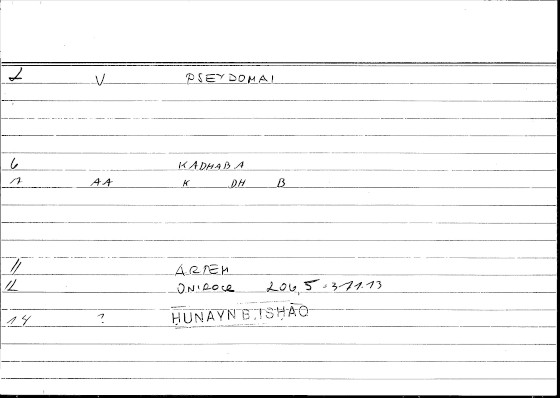 2 V PSEYDOMAI
6 KADHABA
7 AA K DH B
11 ARTEM
12 ONIROCR 206,5
14 ? ḤUNAYN B. ISḤĀQ